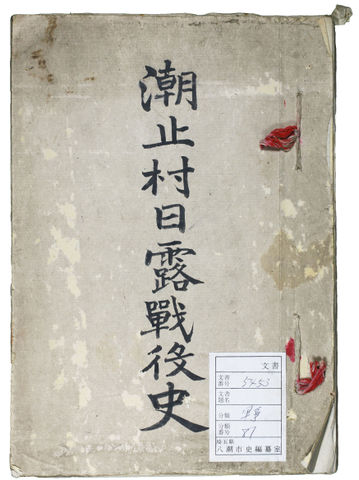 潮止村日露戰役史
文書
文書番号 5453
文書題名
分類 軍事
分類番号 87
埼玉縣
八潮市史編纂室